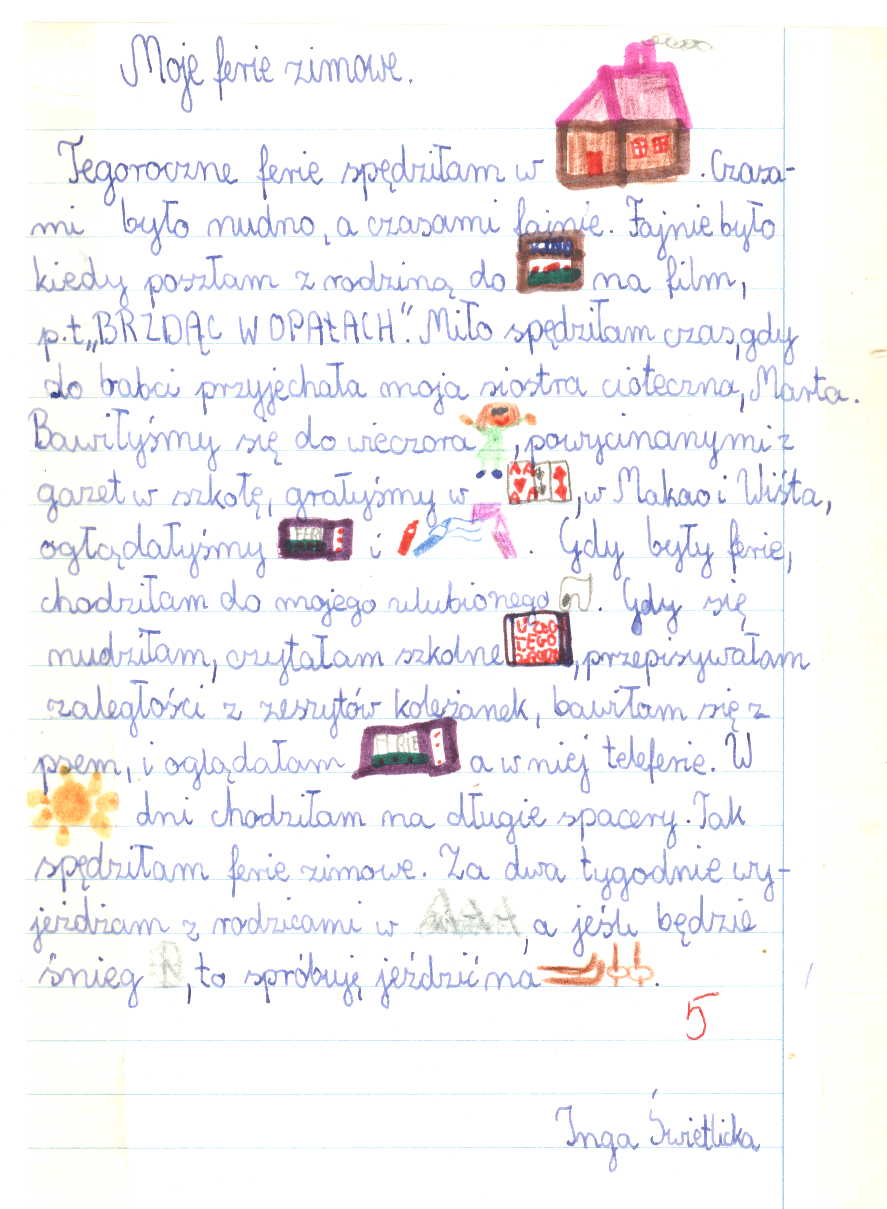 Moje ferie zimowe.
Tegoroczne ferie spędziłam w . Czasa-
mi było nudno, a czasami fajnie. Fajnie było
KINO
kiedy poszłam z rodziną do na film,
p.t. „BRZDĄC W OPAŁACH". Miło spędziłam czas, gdy
do babci przyjechała moja siostra cioteczna, Marta.
Bawiłyśmy się do wieczora , powycinanymi z
gazet w szkołę, grałyśmy w , w Makao i Wista,
A A A A
oglądałyśmy i . Gdy były ferie,
FERI
chodziłam do mojego ulubionego . Gdy się
nudziłam, czytałam szkolne , przepisywałam
zaległości z zeszytów koleżanek, bawiłam się z
psem, i oglądałam a w niej teleferie. W
FERIE
dni chodziłam na długie spacery. Tak
spędziłam ferie zimowe. Za dwa tygodnie wy-
jeżdżam z rodzicami w , a jeśli będzie
śnieg , to spróbuję jeździć na .
5
Inga Świetlicka